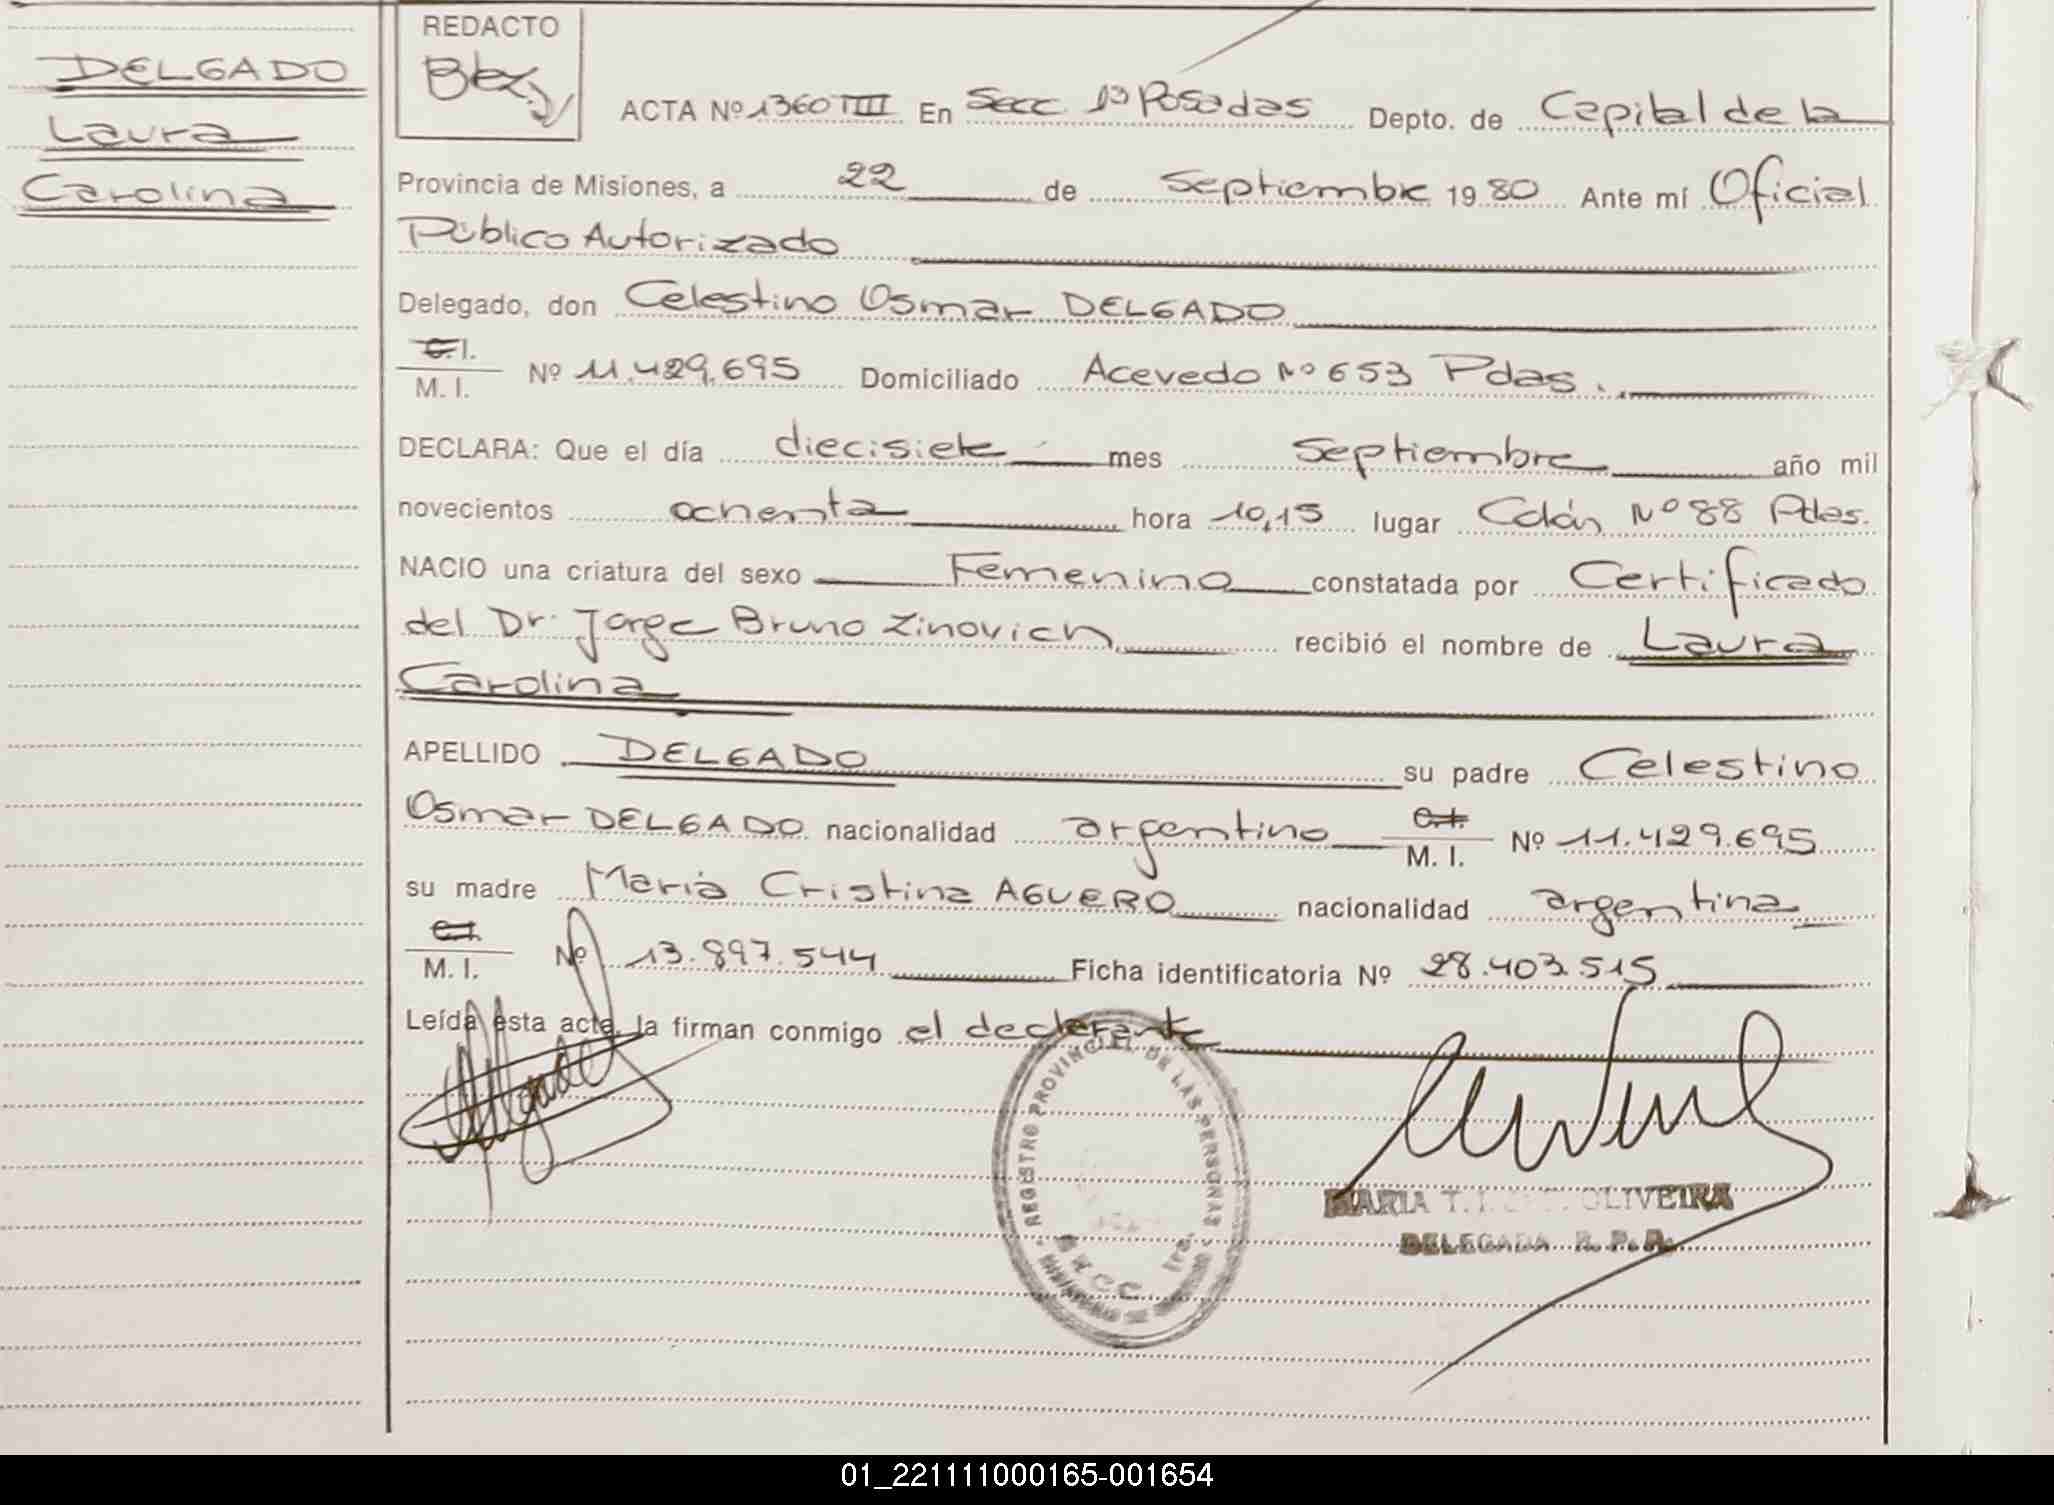 DELGADO
Laura
Carolina
REDACTO
ACTA Nº 1360 TIII En Secc 1ª Posadas Depto. de Capital de la
Provincia de Misiones, a 22 de Septiembre 1980 Ante mí Oficial
Público Autorizado
Delegado, don Celestino Osmar DELGADO
C.I.
M. I. Nº 11.429.695 Domiciliado Acevedo Nº 653 Pdas.
DECLARA: Que el día diecisiete mes Septiembre año mil
novecientos ochenta hora 10,15 lugar Colón Nº 88 Pdas.
NACIO una criatura del sexo Femenino constatada por Certificado
del Dr. Jorge Bruno Zinovich recibió el nombre de Laura
Carolina
APELLIDO DELGADO su padre Celestino
Osmar DELGADO nacionalidad argentino C.I. M. I. Nº 11.429.695
su madre María Cristina AGUERO nacionalidad argentina
C.I.
M. I. Nº 13.897.544 Ficha identificatoria Nº 28.403.515
Leída esta acta, la firman conmigo el declarante
REGISTRO PROVINCIAL DE LAS PERSONAS
SECC 1ra.
MARIA T. OLIVEIRA
DELEGADA R. P. P.
01_221111000165-001654